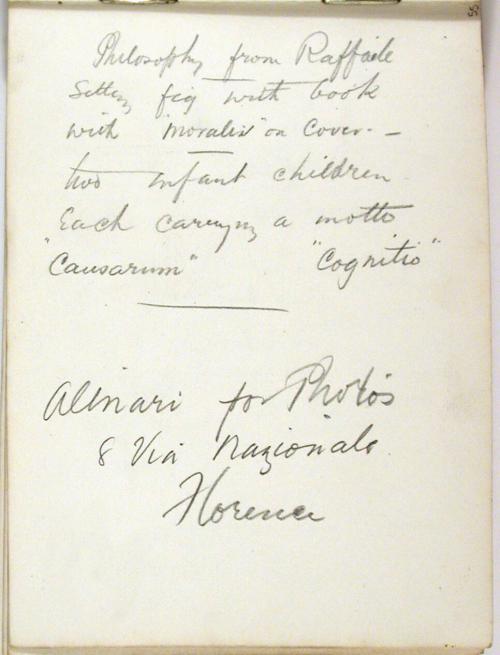 55
Philosophy from Raffaele
Sitting fig with book
with "Moralis" on Cover. —
two infant children
Each carrying a motto
"Causarum" "Cognitio"
Alinari for Photos
8 Via Nazionale
Florence